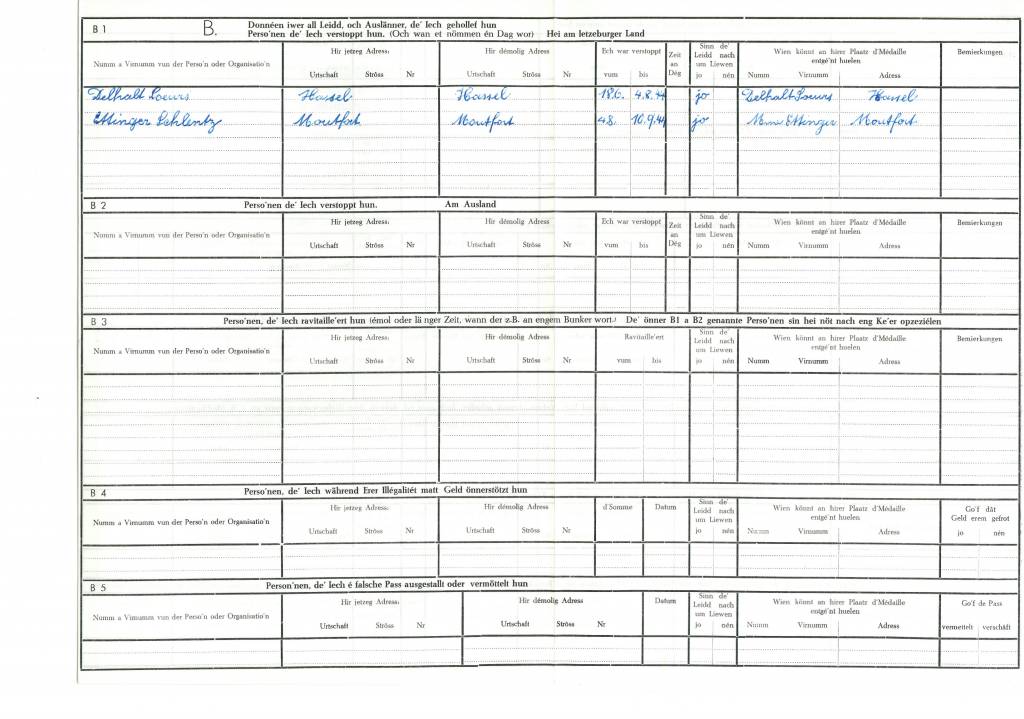 B 1 B. Donnéen iwer all Leidd, och Auslänner, de' Iech gehollef hun
Perso'nen de' Iech verstoppt hun. (Och wan et nömmen én Dag wor) Hei am letzeburger Land
Numm a Virnumm vun der Perso'n oder Organisatio'n
Hir jetzeg Adress:
Urtschaft Ströss Nr
Hir démolig Adress
Urtschaft Ströss Nr
Ech war verstoppt
vum bis
Zeit
an
Dég
Sinn de'
Leidd nach
um Liewen
jo nén
Wien könnt an hirer Plaatz d'Médaille
entgé'nt huelen
Numm Virnumm Adress
Bemierkungen
Hassel Hassel 18.6. 4.8.44 jo Hassel
Ettinger Moutfort Moutfort 4.8. 10.9.44 jo Mme Ettinger Moutfort
B 2 Perso'nen de' Iech verstoppt hun. Am Ausland
Numm a Virnumm vun der Perso'n oder Organisatio'n
Hir jetzeg Adress:
Urtschaft Ströss Nr
Hir démolig Adress
Urtschaft Ströss Nr
Ech war verstoppt
vum bis
Zeit
an
Dég
Sinn de'
Leidd nach
um Liewen
jo nén
Wien könnt an hirer Plaatz d'Médaille
entgé'nt huelen
Numm Virnumm Adress
Bemierkungen
B 3 Perso'nen, de' Iech ravitaille'ert hun (émol oder lä nger Zeit, wann der z.B. an engem Bunker wort.) De' önner B1 a B2 genannte Perso'nen sin hei nöt nach eng Ke'er opzeziélen
Numm a Virnumm vun der Perso'n oder Organisatio'n
Hir jetzeg Adress:
Urtschaft Ströss Nr
Hir démolig Adress
Urtschaft Ströss Nr
Ravitaille'ert
vum bis
Sinn de'
Leidd nach
um Liewen
jo nén
Wien könnt an hirer Plaatz d'Médaille
entgé'nt huelen
Numm Virnumm Adress
Bemierkungen
B 4 Perso'nen, de' Iech während Erer Illégalitét matt Geld önnerstötzt hun
Numm a Virnumm vun der Perso'n oder Organisatio'n
Hir jetzeg Adress:
Urtschaft Ströss Nr
Hir démolig Adress
Urtschaft Ströss Nr
d'Somme
Datum
Sinn de'
Leidd nach
um Liewen
jo nén
Wien könnt an hirer Plaatz d'Médaille
entgé'nt huelen
Numm Virnumm Adress
Go'f dât
Geld erem gefrot
jo nén
B 5 Person'nen, de' Iech é falsche Pass ausgestallt oder vermöttelt hun
Numm a Virnumm vun der Perso'n oder Organisatio'n
Hir jetzeg Adress:
Urtschaft Ströss Nr
Hir démolig Adress
Urtschaft Ströss Nr
Datum
Sinn de'
Leidd nach
um Liewen
jo nén
Wien könnt an hirer Plaatz d'Médaille
entgé'nt huelen
Numm Virnumm Adress
Go'f de Pass
vermettelt verschâft